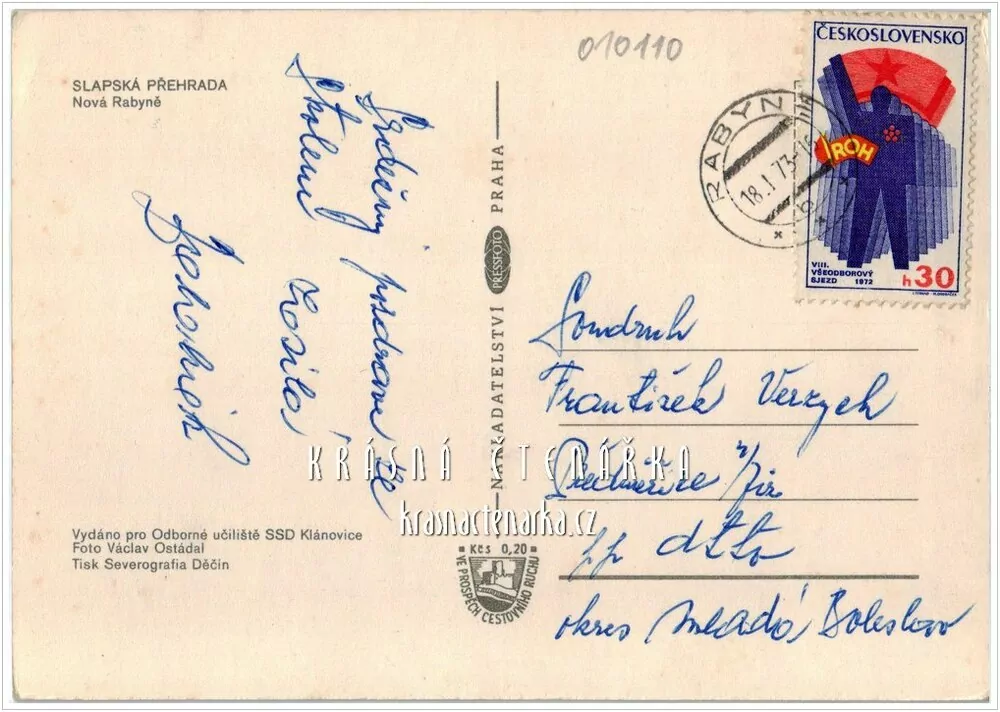 SLAPSKÁ PŘEHRADA
Nová Rabyně
010110
ČESKOSLOVENSKO
ROH
VIII.
VŠEODBOROVÝ
SJEZD 1972
h30
RABYNĚ
18.I.73-16
b
Srdečný pozdrav ze
školení
zasílá
NAKLADATELSTVÍ PRESSFOTO PRAHA
Soudruh
František Verzych
Předměřice n/Jiz
pp dtto
okres Mladá Boleslav
KRÁSNÁ ČTENÁŘKA
krasnactenarka.cz
Vydáno pro Odborné učiliště SSD Klánovice
Foto Václav Ostádal
Tisk Severografia Děčín
Kčs 0,20
VE PROSPĚCH CESTOVNÍHO RUCHU